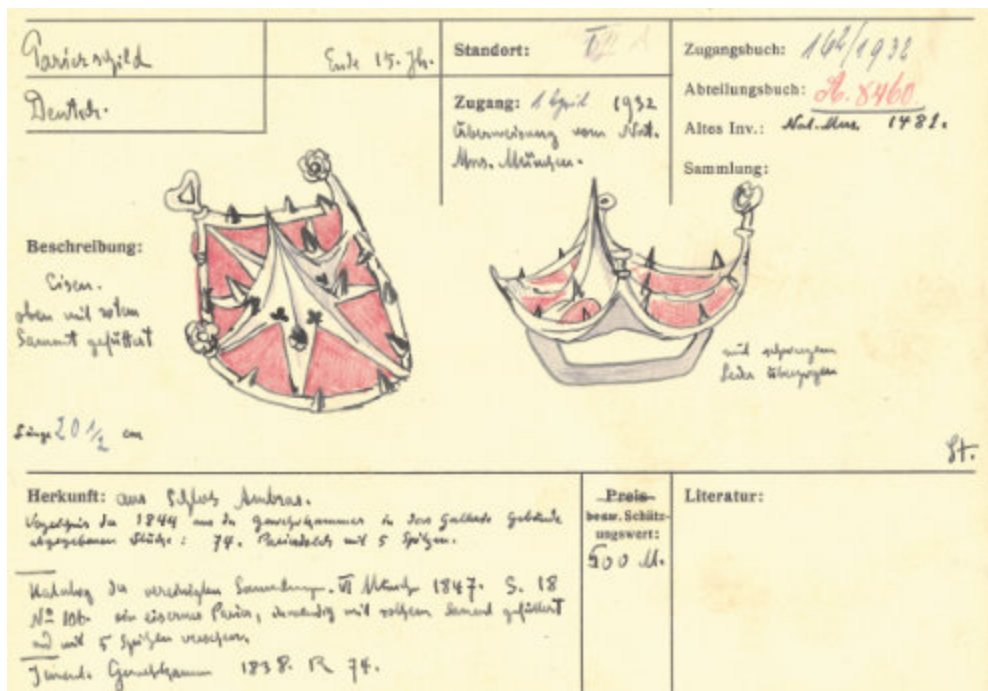 Parierschild
Ende 15. Jh.
Deutsch.
Standort:
Zugang: 1 April 1932
Überweisung vom Nat.
Mus. München.
Zugangsbuch: 162/1932
Abteilungsbuch: A. 8460.
Altes Inv.: Nat. Mus. 1481.
Sammlung:
Beschreibung:
Eisen.
oben mit rotem
Sammt gefüttert
mit schwarzem
Leder überzogen
Länge 20 1/2 cm
St.
Herkunft: aus Schloß Ambras.
Verzeichnis der 1844 aus der Gewehrkammer in das Gebäude
abgegebenen Stücke: 74. mit 5 Spitzen.
Katalog der vereinigten Sammlungen. VI München 1847. S. 18
No 106. ein eisernes Parier, inwendig mit rothem Sammt gefüttert
und mit 5 Spitzen versehen.
Invent. Gewehrkammer 1838. R 74.
Preis
bezw. Schätz-
ungswert:
500 M.
Literatur: